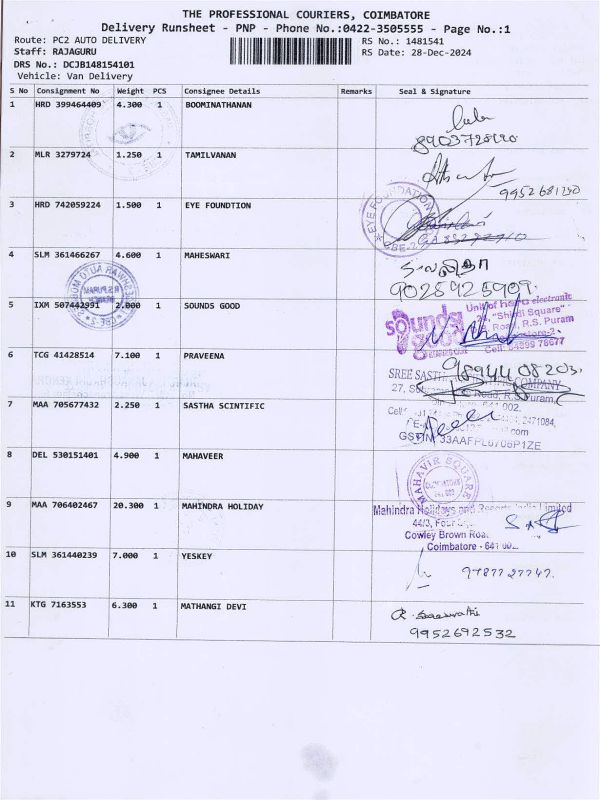 THE PROFESSIONAL COURIERS, COIMBATORE
Delivery Runsheet - PNP - Phone No.:0422-3505555 - Page No.:1
Route: PC2 AUTO DELIVERY
RS No.: 1481541
Staff: RAJAGURU
RS Date: 28-Dec-2024
DRS No.: DCJB148154101
Vehicle: Van Delivery
S No Consignment No Weight PCS Consignee Details Remarks Seal & Signature
1 HRD 399464409 4.300 1 BOOMINATHANAN
2 MLR 3279724 1.250 1 TAMILVANAN
3 HRD 742059224 1.500 1 EYE FOUNDTION
EYE FOUNDATION
4 SLM 361466267 4.600 1 MAHESWARI
9025925909
5 IXM 507442991 2.000 1 SOUNDS GOOD
sounds good
Unit of electronic
24, "Shirdi Square"
Road, R.S. Puram
6 TCG 41428514 7.100 1 PRAVEENA
7 MAA 705677432 2.250 1 SASTHA SCINTIFIC
SREE COMPANY
27, Road, R.S.Puram,
8 DEL 530151401 4.900 1 MAHAVEER
MAHAVIR SQUARE
9 MAA 706402467 20.300 1 MAHINDRA HOLIDAY
Mahindra Holidays and Resorts India Limited
44/3,
Cowley Brown Road
Coimbatore - 641
10 SLM 361440239 7.000 1 YESKEY
11 KTG 7163553 6.300 1 MATHANGI DEVI
9952692532